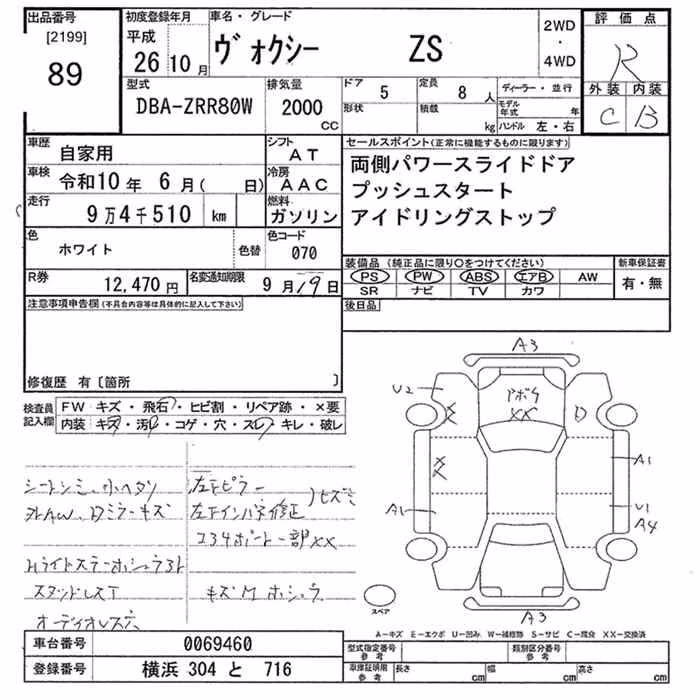 出品番号
[2199]
89
初度登録年月
平成
26 10 月
車名・グレード
ヴォクシー ZS
2WD
・
4WD
評価点
R
外装 内装
C B
型式
DBA-ZRR80W
排気量
2000
CC
ドア 5
形状
定員 8 人
積載 kg
ディーラー・並行
モデル年式 年
ハンドル 左・右
車歴
自家用
シフト
AT
車検
令和10年 6月( 日)
冷房
AAC
走行
9万4千510 km
燃料
ガソリン
色
ホワイト
色替
色コード
070
R券
12,470 円
名変通知期限
9月19日
セールスポイント(正常に機能するものに限ります)
両側パワースライドドア
プッシュスタート
アイドリングストップ
装備品(純正品に限り○をつけてください)
PS PW ABS エアB AW
SR ナビ TV カワ
新車保証書
有・無
後日品
注意事項申告欄(不具合内容等は具体的に記入して下さい)
修復歴 有〔箇所 〕
検査員
記入欄
FW キズ・飛石・ヒビ割・リペア跡・×要
内装 キズ・汚れ・コゲ・穴・スレ・キレ・破レ
シートシミ、小ヘタリ
外AW、Dミラーキズ
Hライトステーホシュウ
スタッドレスT
オーディオレス穴
左下ピラー
左下インパネ修正
コネサポート一部XX
キズMホシュウ
A3
U2
XX
A1
A1
U1
A4
A3
スペア
A―キズ E―エクボ U―凹み W―補修跡 S―サビ C―腐食 XX―交換済
車台番号 0069460
登録番号 横浜 304 と 716
型式指定番号
参考
類別区分番号
参考
車庫証明用
参考
長さ cm
幅 cm
高さ cm